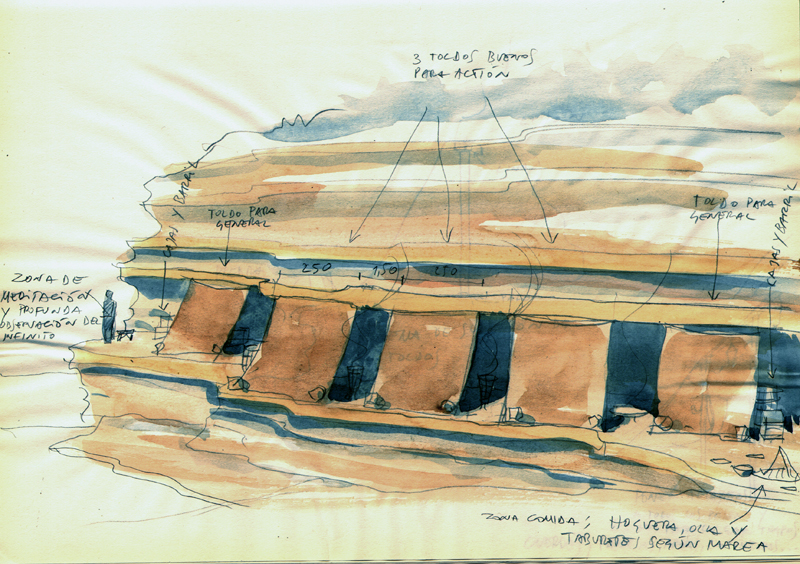 3 TOLDOS BUENOS
PARA ACCIÓN
CAJAS Y BARRIL
TOLDO PARA
GENERAL
TOLDO PARA
GENERAL
CAJAS Y BARRIL
250
1,50
250
ZONA DE
MEDITACIÓN
Y PROFUNDA
OBSERVACIÓN DEL
INFINITO
ZONA COMIDA; HOGUERA, OLLA Y
TABURETES SEGÚN MAREA